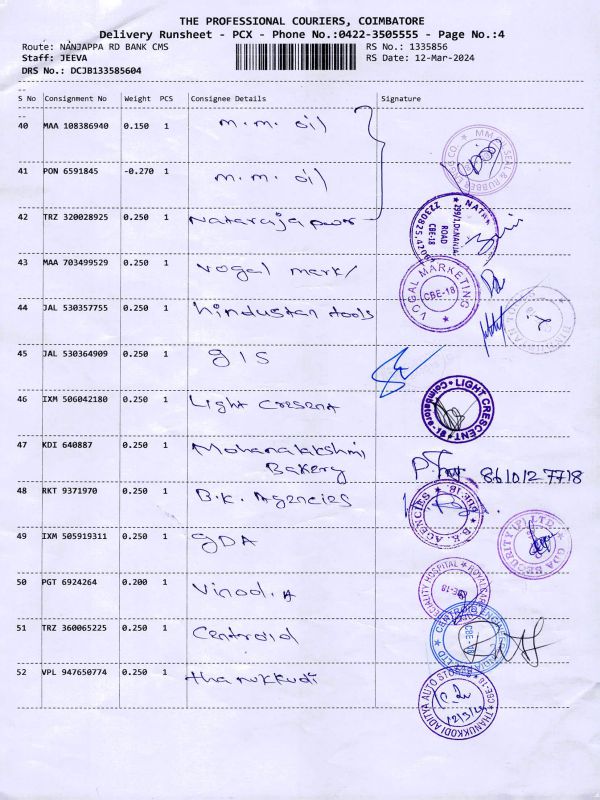 THE PROFESSIONAL COURIERS, COIMBATORE
Delivery Runsheet - PCX - Phone No.:0422-3505555 - Page No.:4
Route: NANJAPPA RD BANK CMS RS No.: 1335856
Staff: JEEVA RS Date: 12-Mar-2024
DRS No.: DCJB133585604
S No Consignment No Weight PCS Consignee Details Signature
40 MAA 108386940 0.150 1 m.m. oil
41 PON 6591845 -0.270 1 m.m. oil
42 TRZ 320028925 0.250 1 Nataraja
43 MAA 703499529 0.250 1 Vogal mark/
VOGAL MARKETING CBE-18
44 JAL 530357755 0.250 1 hindustan tools
45 JAL 530364909 0.250 1 GIS
46 IXM 506042180 0.250 1 Light Cresent
LIGHT CRESCENT Coimbatore-18
47 KDI 640887 0.250 1 Mohanalakshmi
Bakery
8610127718
48 RKT 9371970 0.250 1 B.K. Agencies
B.K. AGENCIES
49 IXM 505919311 0.250 1 GDA
GDA SECURITY (P) LTD
50 PGT 6924264 0.200 1 Vinod.A
51 TRZ 360065225 0.250 1 Centroid
52 VPL 947650774 0.250 1 thanukkudi
THANUKKODI ADITYA AUTO STORES CBE-18
12/3/24